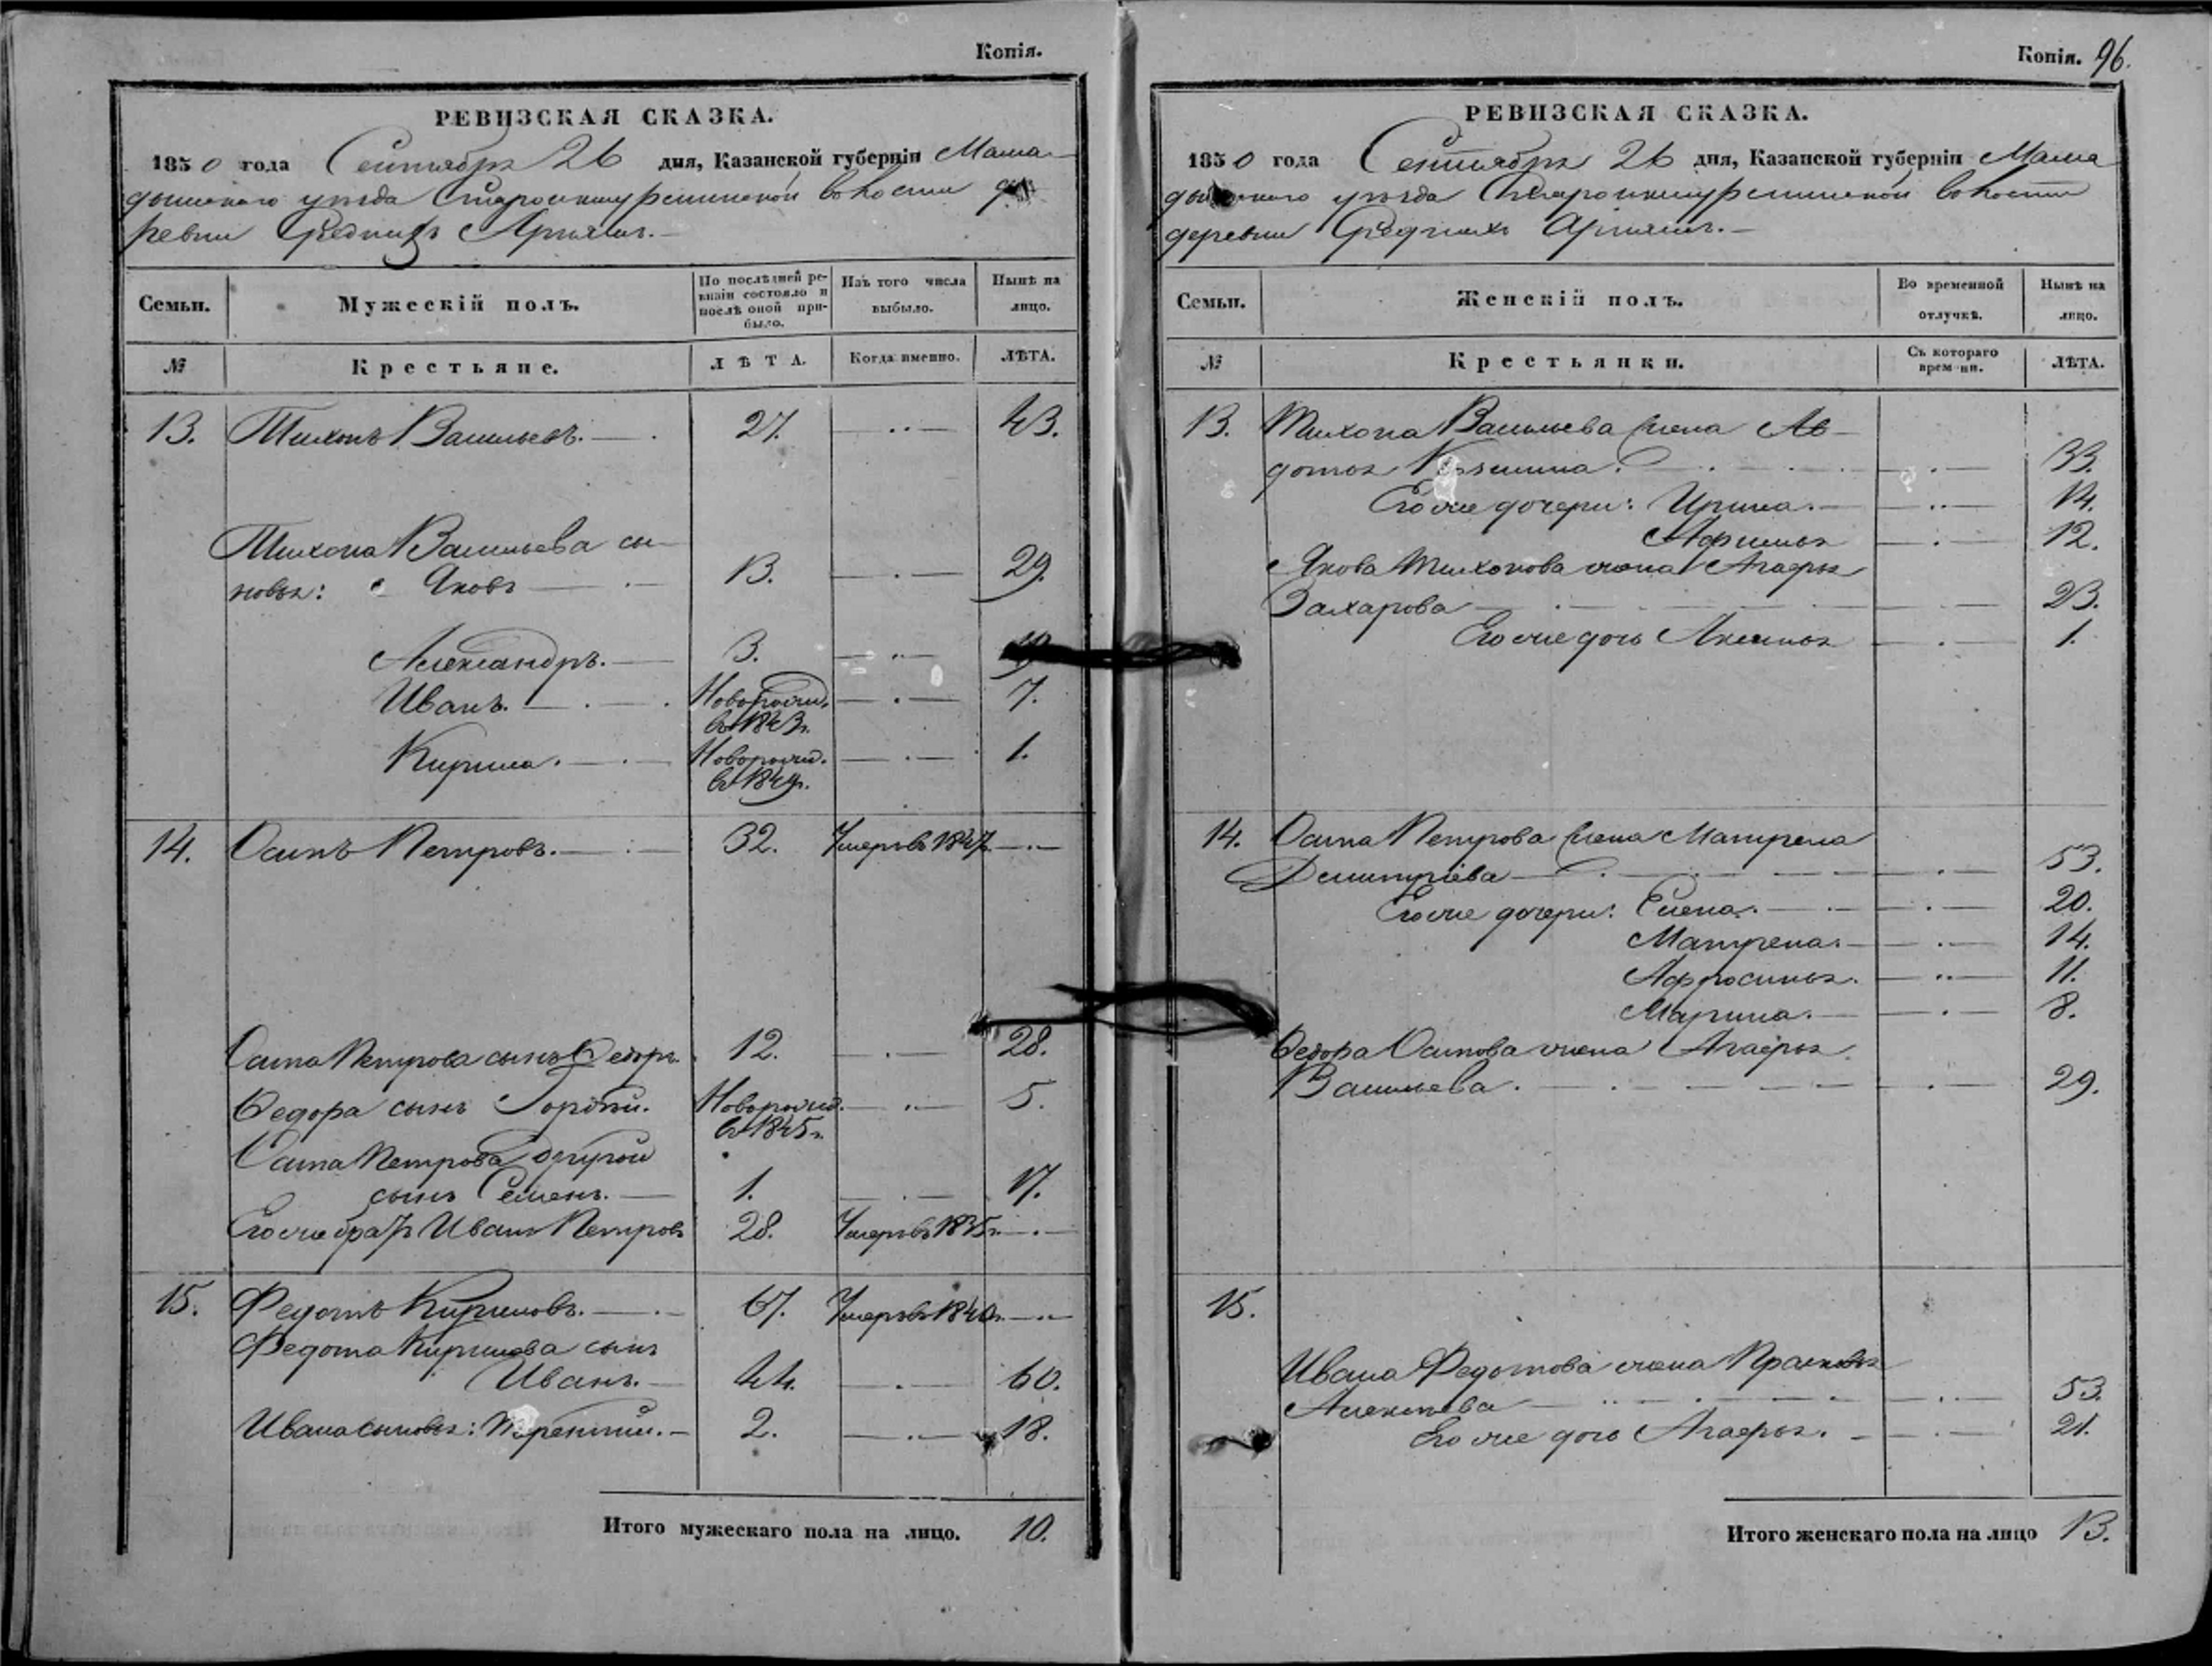 Копія.
РЕВИЗСКАЯ СКАЗКА.
1850 года Сентября 26 дня, Казанской губерніи Мама-
дышскаго уѣзда Старо волости де-
ревни Среднихъ
Семьи. Мужескій полъ. По послѣдней ре-визіи состояло и послѣ оной при-было. Изъ того числа выбыло. Нынѣ на лицо.
№ Крестьяне. ЛѢТА. Когда именно. ЛѢТА.
13. Тихонъ Васильевъ. 27. 43.
Тихона Васильева сы-
новья: Яковъ 13. 29.
Александръ. 3.
Иванъ. Новорожд. въ 1843г. 7.
Кирила. Новорожд. въ 1849г. 1.
14. Осипъ Петровъ. 32. Умеръ въ 1847
Осипа Петрова сынъ Ѳедоръ. 12. 28.
Ѳедора сынъ Новорожд. въ 1845г. 5.
Осипа Петрова другой
сынъ Семенъ. 1. 17.
Его же братъ Иванъ Петровъ 28. Умеръ въ 1835г.
15. Федотъ Кириловъ. 67. Умеръ въ 1840г.
Федота Кирилова сынъ
Иванъ. 44. 60.
Ивана сыновья: Терентий. 2. 18.
Итого мужескаго пола на лицо. 10.
Копія. 96.
РЕВИЗСКАЯ СКАЗКА.
1850 года Сентября 26 дня, Казанской губерніи Мама
дышскаго уѣзда Старо волости
деревни Среднихъ
Семьи. Женскій полъ. Во временной отлучкѣ. Нынѣ на лицо.
№ Крестьянки. Съ котораго врем-ни. ЛѢТА.
13. Тихона Васильева жена Ав-
дотья Кузмина. 33.
Его же дочери: Ирина. 14.
Афимья 12.
Якова Тихонова жена Агафья
Захарова 23.
Его же дочь Аксинья 1.
14. Осипа Петрова жена Матрена
Дмитріева 53.
Его же дочери: Елена. 20.
Матрена. 14.
Афросинья. 11.
Марина. 8.
Ѳедора Осипова жена Агафья
Васильева. 29.
15.
Ивана Федотова жена Прасковья
Алексѣева 53.
Его же дочь Агафья. 21.
Итого женскаго пола на лицо 13.